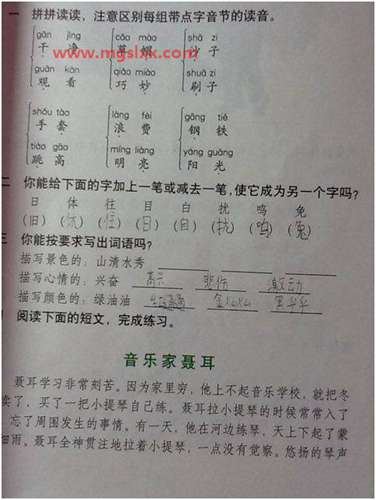 一 拼拼读读，注意区别每组带点字音节的读音。
gān jìng cǎo mào shā zi
干 净 草 帽 沙 子
guān kàn qiǎo miào shuā zi
观 看 巧 妙 刷 子
shǒu tào làng fèi gāng tiě
手 套 浪 费 钢 铁
tiào gāo míng liàng yáng guāng
跳 高 明 亮 阳 光
二 你能给下面的字加上一笔或减去一笔，使它成为另一个字吗？
日 体 往 目 白 扰 鸣 免
（旧）（ ）（住）（日）（自）（扰）（鸣）（兔）
三 你能按要求写出词语吗？
描写景色的：山清水秀
描写心情的：兴奋 高兴 悲伤 激动
描写颜色的：绿油油 金灿灿 黑乎乎
阅读下面的短文，完成练习。
音乐家聂耳
聂耳学习非常刻苦。因为家里穷，他上不起音乐学校，就把冬
卖了，买了一把小提琴自己练。聂耳拉小提琴的时候常常入了
忘了周围发生的事情。有一天，他在河边练琴，天上下起了蒙
细雨。聂耳全神贯注地拉着小提琴，一点没有觉察。悠扬的琴声